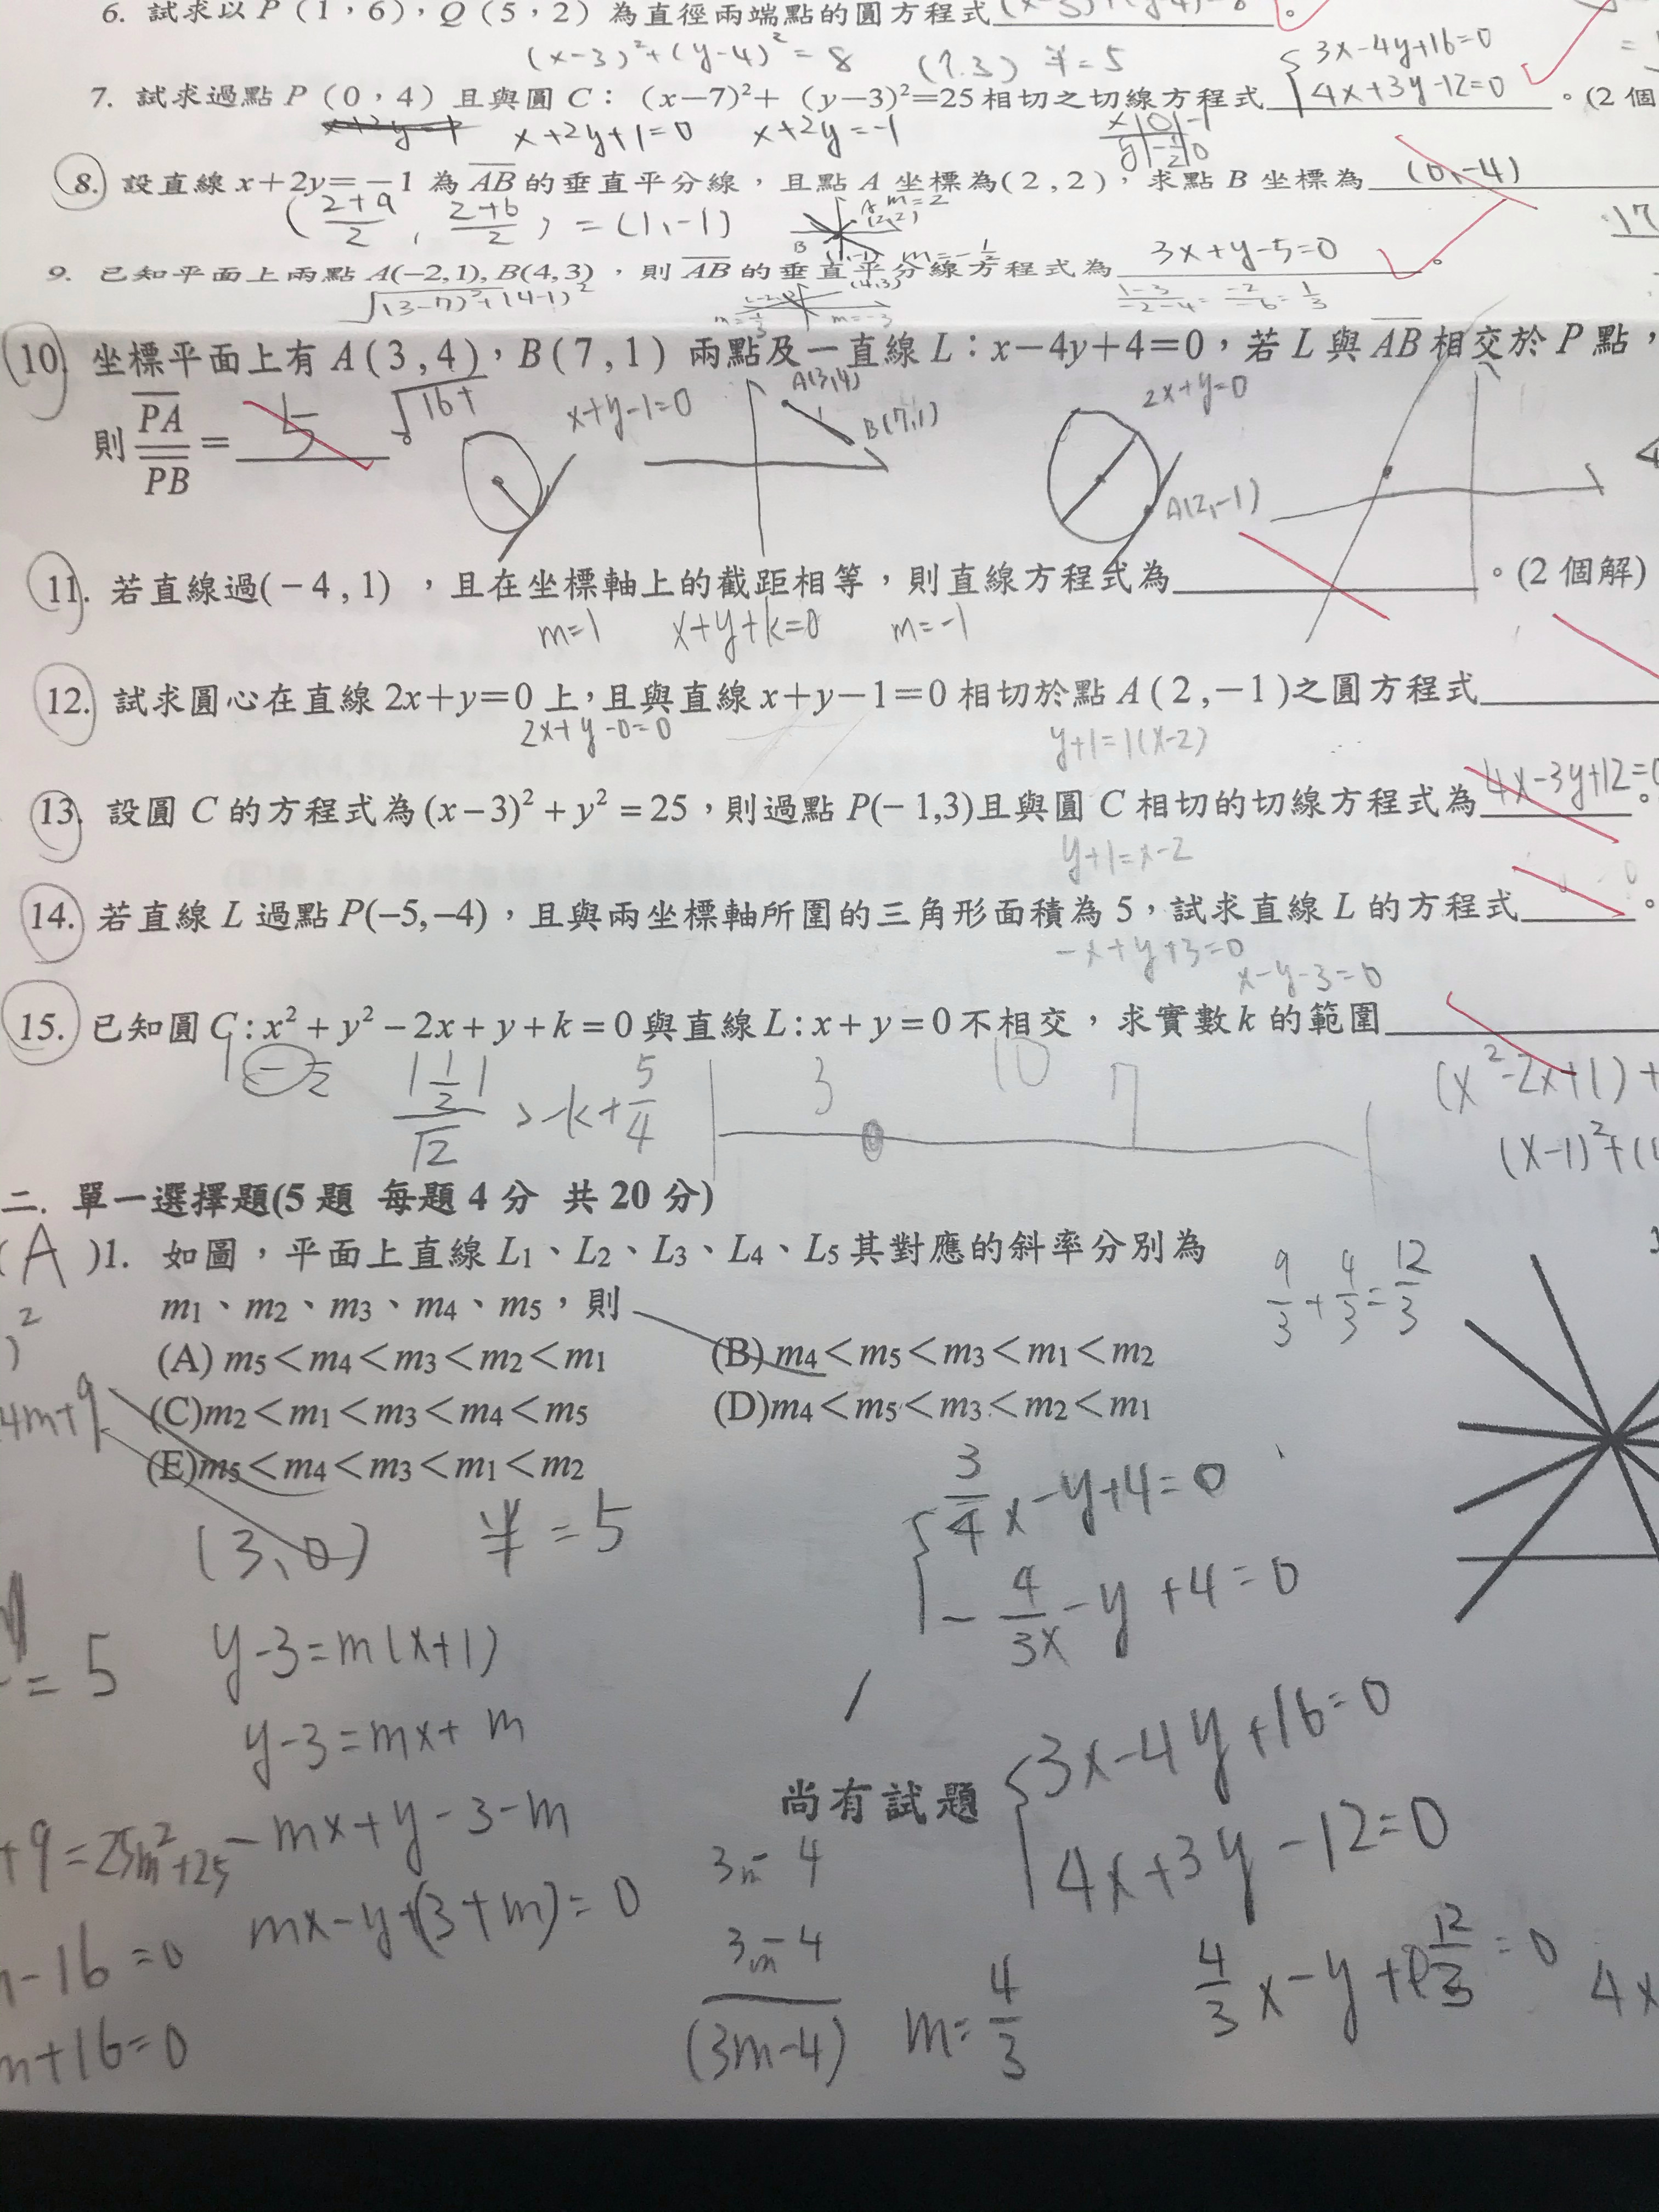 6. 試求以 P（1，6），Q（5，2）為直徑兩端點的圓方程式
(x-3)²+(y-4)²=8 (7.3) 半=5
3x-4y+16=0
7. 試求過點 P（0，4）且與圓 C：（x－7)²＋（y－3)²＝25 相切之切線方程式 4x+3y-12=0 。(2 個
x+2y+1=0 x+2y=-1
8. 設直線 x＋2y＝－1 為 AB 的垂直平分線，且點 A 坐標為(2 , 2)，求點 B 坐標為 (0,-4)
(2+a/2 , 2+b/2) = (1,-1)
9. 已知平面上兩點 A(−2,1), B(4,3)，則 AB 的垂直平分線方程式為 3x+y-5=0 。
√(3-7)²+(4-1)²
10. 坐標平面上有 A(3 , 4)，B(7 , 1) 兩點及一直線 L：x－4y＋4＝0，若 L 與 AB 相交於 P 點，
則 PA/PB = 5 。
x+y-1=0 A(3,4) B(7,1) 2x+y=0 A(2,-1)
11. 若直線過(－4 , 1) ，且在坐標軸上的截距相等，則直線方程式為 。(2 個解)
m=1 x+y+k=0 m=-1
12. 試求圓心在直線 2x＋y＝0 上，且與直線 x＋y－1＝0 相切於點 A ( 2 ,－1 )之圓方程式
2x+y-0=0 y+1=1(x-2)
13. 設圓 C 的方程式為 (x－3)² + y² = 25，則過點 P(−1,3)且與圓 C 相切的切線方程式為 4x-3y+12=0 。
y+1=x-2
14. 若直線 L 過點 P(−5,−4)，且與兩坐標軸所圍的三角形面積為 5，試求直線 L 的方程式 。
-x+y+3=0
x-y-3=0
15. 已知圓 C : x² + y² − 2x + y + k = 0 與直線 L : x + y = 0 不相交，求實數 k 的範圍
|1/2|/√2 > -k+5/4 3 10 7
(x²-2x+1)+
(x-1)²+(
二. 單一選擇題(5 題 每題 4 分 共 20 分)
( A )1. 如圖，平面上直線 L1、L2、L3、L4、L5 其對應的斜率分別為
m1、m2、m3、m4、m5，則
9/3+4/3=12/3
(A) m5＜m4＜m3＜m2＜m1 (B) m4＜m5＜m3＜m1＜m2
(C)m2＜m1＜m3＜m4＜m5 (D)m4＜m5＜m3＜m2＜m1
4m+9
(E)m5＜m4＜m3＜m1＜m2
3/4x-y+4=0
(3,0) 半=5
-4/3x-y+4=0
=5 y-3=m(x+1)
y-3=mx+m
3x-4y+16=0
尚有試題
4x+3y-12=0
+9=25m²+25 -mx+y-3-m
3m-4
mx-y+(3+m)=0
3m-4
-16=0
(3m-4) m=4/3 4/3x-y+12/3=0 4x
m+16=0